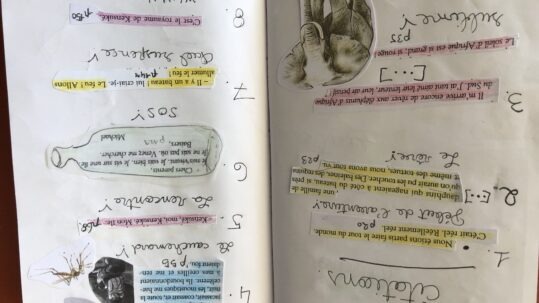 Citations
1. Nous étions partis faire le tour du monde.
C'était réel. Réellement réel. p20
Début de l'aventure !
2. [...] une famille de
dauphins qui nageaient à côté du bateau, si près
qu'on aurait pu les toucher. Des baleines, des requins
et même des tortues, nous avons tout vu. p43
Le rêve !
3. Il m'arrive encore de rêver aux éléphants d'Afrique
du Sud. J'ai tant aimé leur lenteur, leur air pensif !
[...]
Le soleil d'Afrique est si grand, si rouge
p35
sublime !
4. jacassait, coassait, toute la
nuit, les moustiques me
bourdonnaient
à mes oreilles et me ren-
daient fou. p55
Le cauchemar !
5. Kensuké, moi, Kensuké. Mon île. p60
La rencontre !
6. Chers parents,
Je suis vivant. Je vais bien. Je vis sur une île.
Je ne sais pas où. Venez me chercher.
Baisers,
Michael
SOS !
7. – Il y a un bateau ! lui criai-je. Le feu ! Allons
allumer le feu !
Quel suspense !
8. C'est le royaume de Kensuké. p150